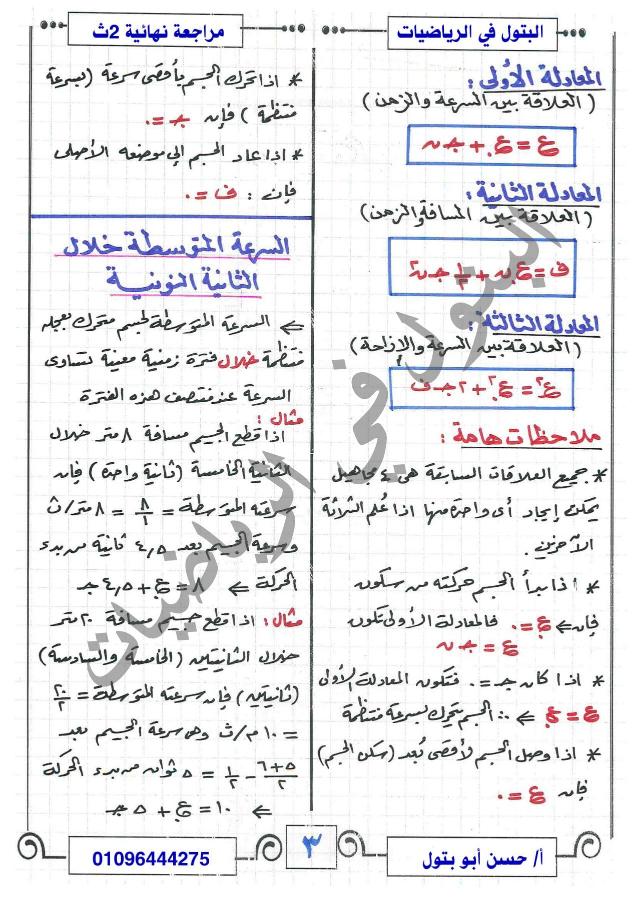 البتول في الرياضيات
مراجعة نهائية 2ث
المعادلة الأولى :
( العلاقة بين السرعة والزمن )
ع = ع. + جـ ن
المعادلة الثانية :
( العلاقة بين المسافة والزمن )
ف = ع. ن + ١/٢ جـ ن٢
المعادلة الثالثة :
( العلاقة بين السرعة والإزاحة )
ع٢ = ع.٢ + ٢ جـ ف
ملاحظات هامة :
* جميع العلاقات السابقة هى ٤ مجاهيل
يمكن إيجاد أى واحدة منها اذا عُلم الثلاثة
الآخرين .
* اذا بدأ الجسم حركته من سكون
فإن ⇐ ع. = ٠ فالمعادلة الأولى تكون
ع = جـ ن
* اذا كان جـ = ٠ فتكون المعادلة الأولى
ع = ع. ⇐ ∴ الجسم يتحرك بسرعة منتظمة
* اذا وصل الجسم لأقصى بُعد (سكن الجسم)
فإن ع = ٠
* اذا تحرك الجسم بأقصى سرعة ( بسرعة
منتظمة ) فإن جـ = ٠
* اذا عاد الجسم الي موضعه الأصلى
فإن : ف = ٠
السرعة المتوسطة خلال
الثانية النونية
⇐ السرعة المتوسطة لجسم متحرك بعجلة
منتظمة خلال فترة زمنية معينة تساوى
السرعة عند منتصف هذه الفترة
مثال :
اذا قطع الجسم مسافة ٨ متر خلال
الثانية الخامسة ( ثانية واحدة ) فإن
سرعته المتوسطة = ٨/١ = ٨ متر/ث
وسرعة الجسم بعد ٤,٥ ثانية من بدء
الحركة ⇐ ٨ = ع. + ٤,٥ جـ
مثال : اذا قطع جسم مسافة ٢٠ متر
خلال الثانيتين ( الخامسة والسادسة )
( ثانيتين ) فإن سرعته المتوسطة = ٢٠/٢
= ١٠ م/ث وهى سرعة الجسم بعد
٥+٦/٢ - ١/٢ = ٥ ثوان من بدء الحركة
⇐ ١٠ = ع. + ٥ جـ
أ/ حسن أبو بتول
٣
01096444275
البتول في الرياضيات